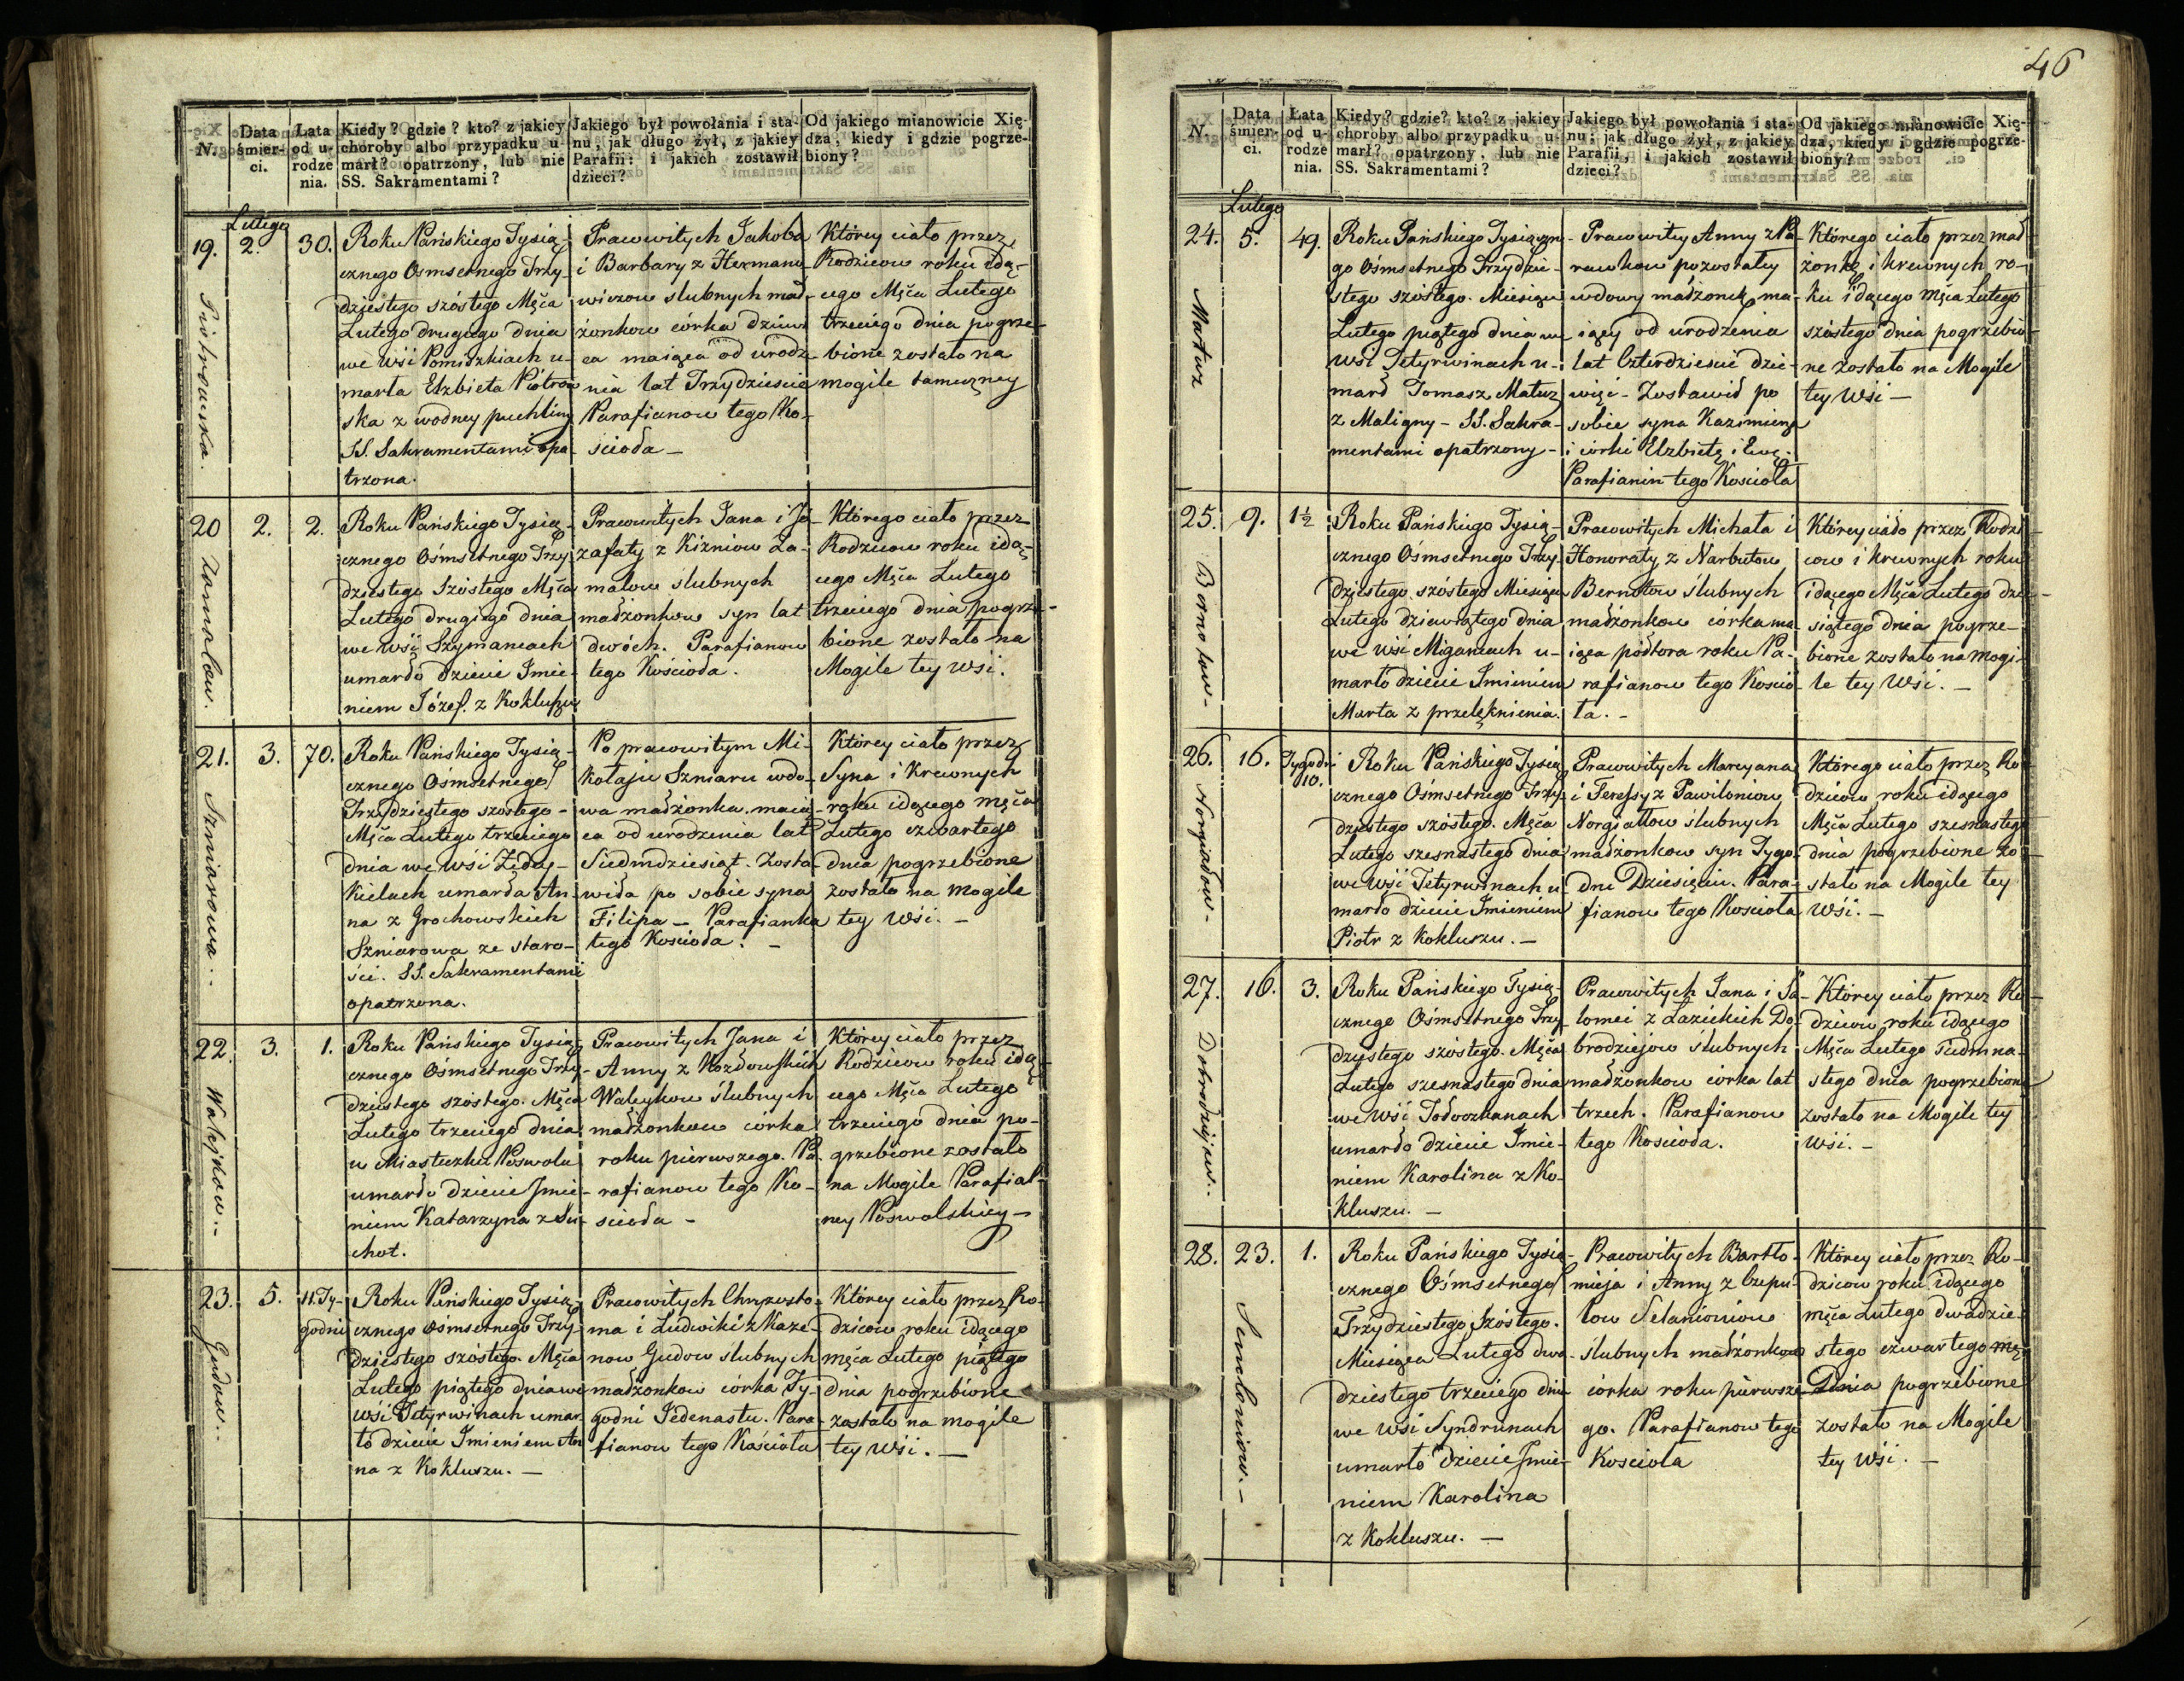 46
N.
Data śmier- ci.
Lata od u- rodze nia.
Kiedy? gdzie? kto? z jakiey
choroby albo przypadku u-
marł? opatrzony, lub nie
SS. Sakramentami?
Jakiego był powołania i sta-
nu, jak długo żył, z jakiey
Parafii: i jakich zostawił
dzieci?
Od jakiego mianowicie Xię-
dza, kiedy i gdzie pogrze-
biony?
Lutego
19.
2.
30.
Piotrowska.
Roku Pańskiego Tysią-
cznego Osmsetnego Trzy-
dziestego szóstego Męca
Lutego drugiego dnia
we wśi Pomiszkiach u-
marła Elzbieta Piotrow
ska z wodney puchliny
SS. Sakramentami opa-
trzona.
Prawowitych Jakoba
i Barbary z Hermano-
wiczow slubnych mał-
żonkow córka dziew
ca maiąca od urodze-
nia lat Trzydzieście
Parafianow tego Ko-
ścioła —
Którey ciało przez
Rodzicow roku idą-
cego Męca Lutego
trzeciego dnia pogrze-
bione zostało na
mogile tameczney
20
2.
2.
Zamałow.
Roku Pańskiego Tysią-
cznego Ośmsetnego Trzy
dziestego Szóstego Męca
Lutego drugiego dnia
we wśi Szymancach
umarło dziecie Imie-
niem Józef. z Kokluszu
Prawowitych Jana i Jó-
zafaty z Kiżniow Za-
małow ślubnych
małżonkow syn lat
dwóch. Parafianow
tego Kościoła.
Którego ciało przez
Rodzicow roku idą-
cego Męca Lutego
trzeciego dnia pogrze-
bione zostało na
Mogile tey wśi.
21.
3.
70.
Szniarowa.
Roku Pańskiego Tysią-
cznego Ośmsetnego
Trzydziestego szostego-
Męca Lutego trzeciego
dnia we wśi Zeday-
kielach umarła An-
na z Grochowskich
Szniarowa ze staro-
ści. SS. Sakramentami
opatrzona.
Po prawowitym Mi-
kołaju Szniaru wdo-
wa małżonka maią-
ca od urodzenia lat
Siedmdziesiąt. Zosta-
wiła po sobie syna
Filipa — Parafianka
tego Kościoła. —
Którey ciało przez
Syna i Krewnych
roku idącego męca
Lutego czwartego
dnia pogrzebione
zostało na mogile
tey wśi. —
22.
3.
1.
Waleykow.
Roku Pańskiego Tysią-
cznego Ośmsetnego Trzy-
dziestego szóstego. Męca
Lutego trzeciego dnia
w Miasteczku Poswolu
umarło dziecie Imie-
niem Katarzyna z Su-
chot.
Prawowitych Jana i
Anny z Kozdowskich
Waleykow ślubnych
małżonkow córka
roku pierwszego. Pa-
rafianow tego Ko-
ścioła —
Którey ciało przez
Rodzicow roku idą-
cego Męca Lutego
trzeciego dnia po-
grzebione zostało
na Mogile Parafial-
ney Poswolskiey —
23.
5.
11. Ty-
godni
Gudow.
Roku Pańskiego Tysią-
cznego osmsetnego Trzy
dziestego szóstego. Męca
Lutego piątego dnia we
wśi Tetyrwinach umar
ło dziecie Imieniem An
na z Kokluszu. —
Prawowitych Chryzosto-
ma i Ludwiki z Kaze-
now Gudow slubnych
małżonkow córka Ty-
godni Jedenastu. Para-
fianow tego Kościoła
Którey ciało przez Ro-
dzicow roku idącego
męca Lutego piątego
dnia pogrzebione
zostało na mogile
tey wśi. —
N.
Data śmier- ci.
Łata od u- rodze nia.
Kiedy? gdzie? kto? z jakiey
choroby albo przypadku u-
marł? opatrzony, lub nie
SS. Sakramentami?
Jakiego był powołania i sta-
nu; jak długo żył, z jakiey
Parafii, i jakich zostawił
dzieci?
Od jakiego mianowicie Xię-
dza, kiedy i gdzie pogrze-
biony?
Lutego
24.
5.
49.
Matuz
Roku Pańskiego Tysiączn
go Ośmsetnego Trzydzie-
stego szóstego. Miesiąca
Lutego piątego dnia w
wśi Tetyrwinach u-
marł Tomasz Matuz
z Maligny — SS. Sakra-
mentami opatrzony —
Prawowitey Anny z Pa-
rawkow pozostałey
wdowy małżonek, ma-
iący od urodzenia
lat Czterdzieście dzie-
więć — Zostawił po
sobie syna Kazimierza
i córki Elzbietę i Ewę.
Parafianin tego Kościoła
Którego ciało przez mał-
żonkę i krewnych ro-
ku idącego Męca Lutego
szóstego dnia pogrzebio-
ne zostało na Mogile
tey wśi —
25.
9.
1½
Bernotow.
Roku Pańskiego Tysią-
cznego Ośmsetnego Trzy-
dziestego szóstego Miesiąca
Lutego dziewiątego dnia
we wśi Migancach u-
marło dziecie Imieniem
Marta z przelęknienia.
Prawowitych Michała i
Honoraty z Narbutow
Bernotow ślubnych
małżonkow córka ma-
iąca półtora roku Pa-
rafianow tego Kościo-
ła. —
Którey ciało przez Rodzi
cow i krewnych roku
idącego Męca Lutego dzie-
siątego dnia pogrze-
bione zostało na mogi-
le tey wśi. —
26.
16.
Tygodni
10.
Norgiałow.
Roku Pańskiego Tysią
cznego Ośmsetnego Trzy
dziestego szóstego. Męca
Lutego szesnastego dnia
we wśi Tetyrwinach u
marło dziecie Imieniem
Piotr z kokluszu. —
Prawowitych Marcyana
i Teressy z Pawiloniow
Norgiałłow ślubnych
małżonkow syn Tygo-
dni Dziesięciu. Para-
fianow tego Kościoła
Którego ciało przez Ro-
dzicow roku idącego
Męca Lutego szesnastego
dnia pogrzebione zo-
stało na Mogile tey
wśi. —
27.
16.
3.
Dobrodziejow.
Roku Pańskiego Tysią-
cznego Ośmsetnego Trzy-
dziestego szóstego. Męca
Lutego szesnastego dnia
we wśi Todoszkanach
umarło dziecie Imie-
niem Karolina z Ko-
kluszu. —
Prawowitych Jana i Sa-
lomei z Łazickich Do-
brodziejow ślubnych
małżonkow córka lat
trzech. Parafianow
tego Kościoła.
Którey ciało przez Ro-
dzicow roku idącego
Męca Lutego siedmna-
stego dnia pogrzebione
zostało na Mogile tey
wśi. —
28.
23.
1.
Roku Pańskiego Tysią-
cznego Ośmsetnego
Trzydziestego Szóstego.
Miesiąca Lutego dwu-
dziestego trzeciego dnia
we wśi Syndrunach
umarło dziecie Imie-
niem Karolina
z Kokluszu. —
Prawowitych Bartło-
mieja i Anny z Czepu-
low
ślubnych małżonkow
córka roku pierwsze-
go. Parafianow tego
Kościoła
Którey ciało przez Ro-
dzicow roku idącego
męca Lutego dwudzie-
stego czwartego mę
Dnia pogrzebione
zostało na Mogile
tey wśi. —